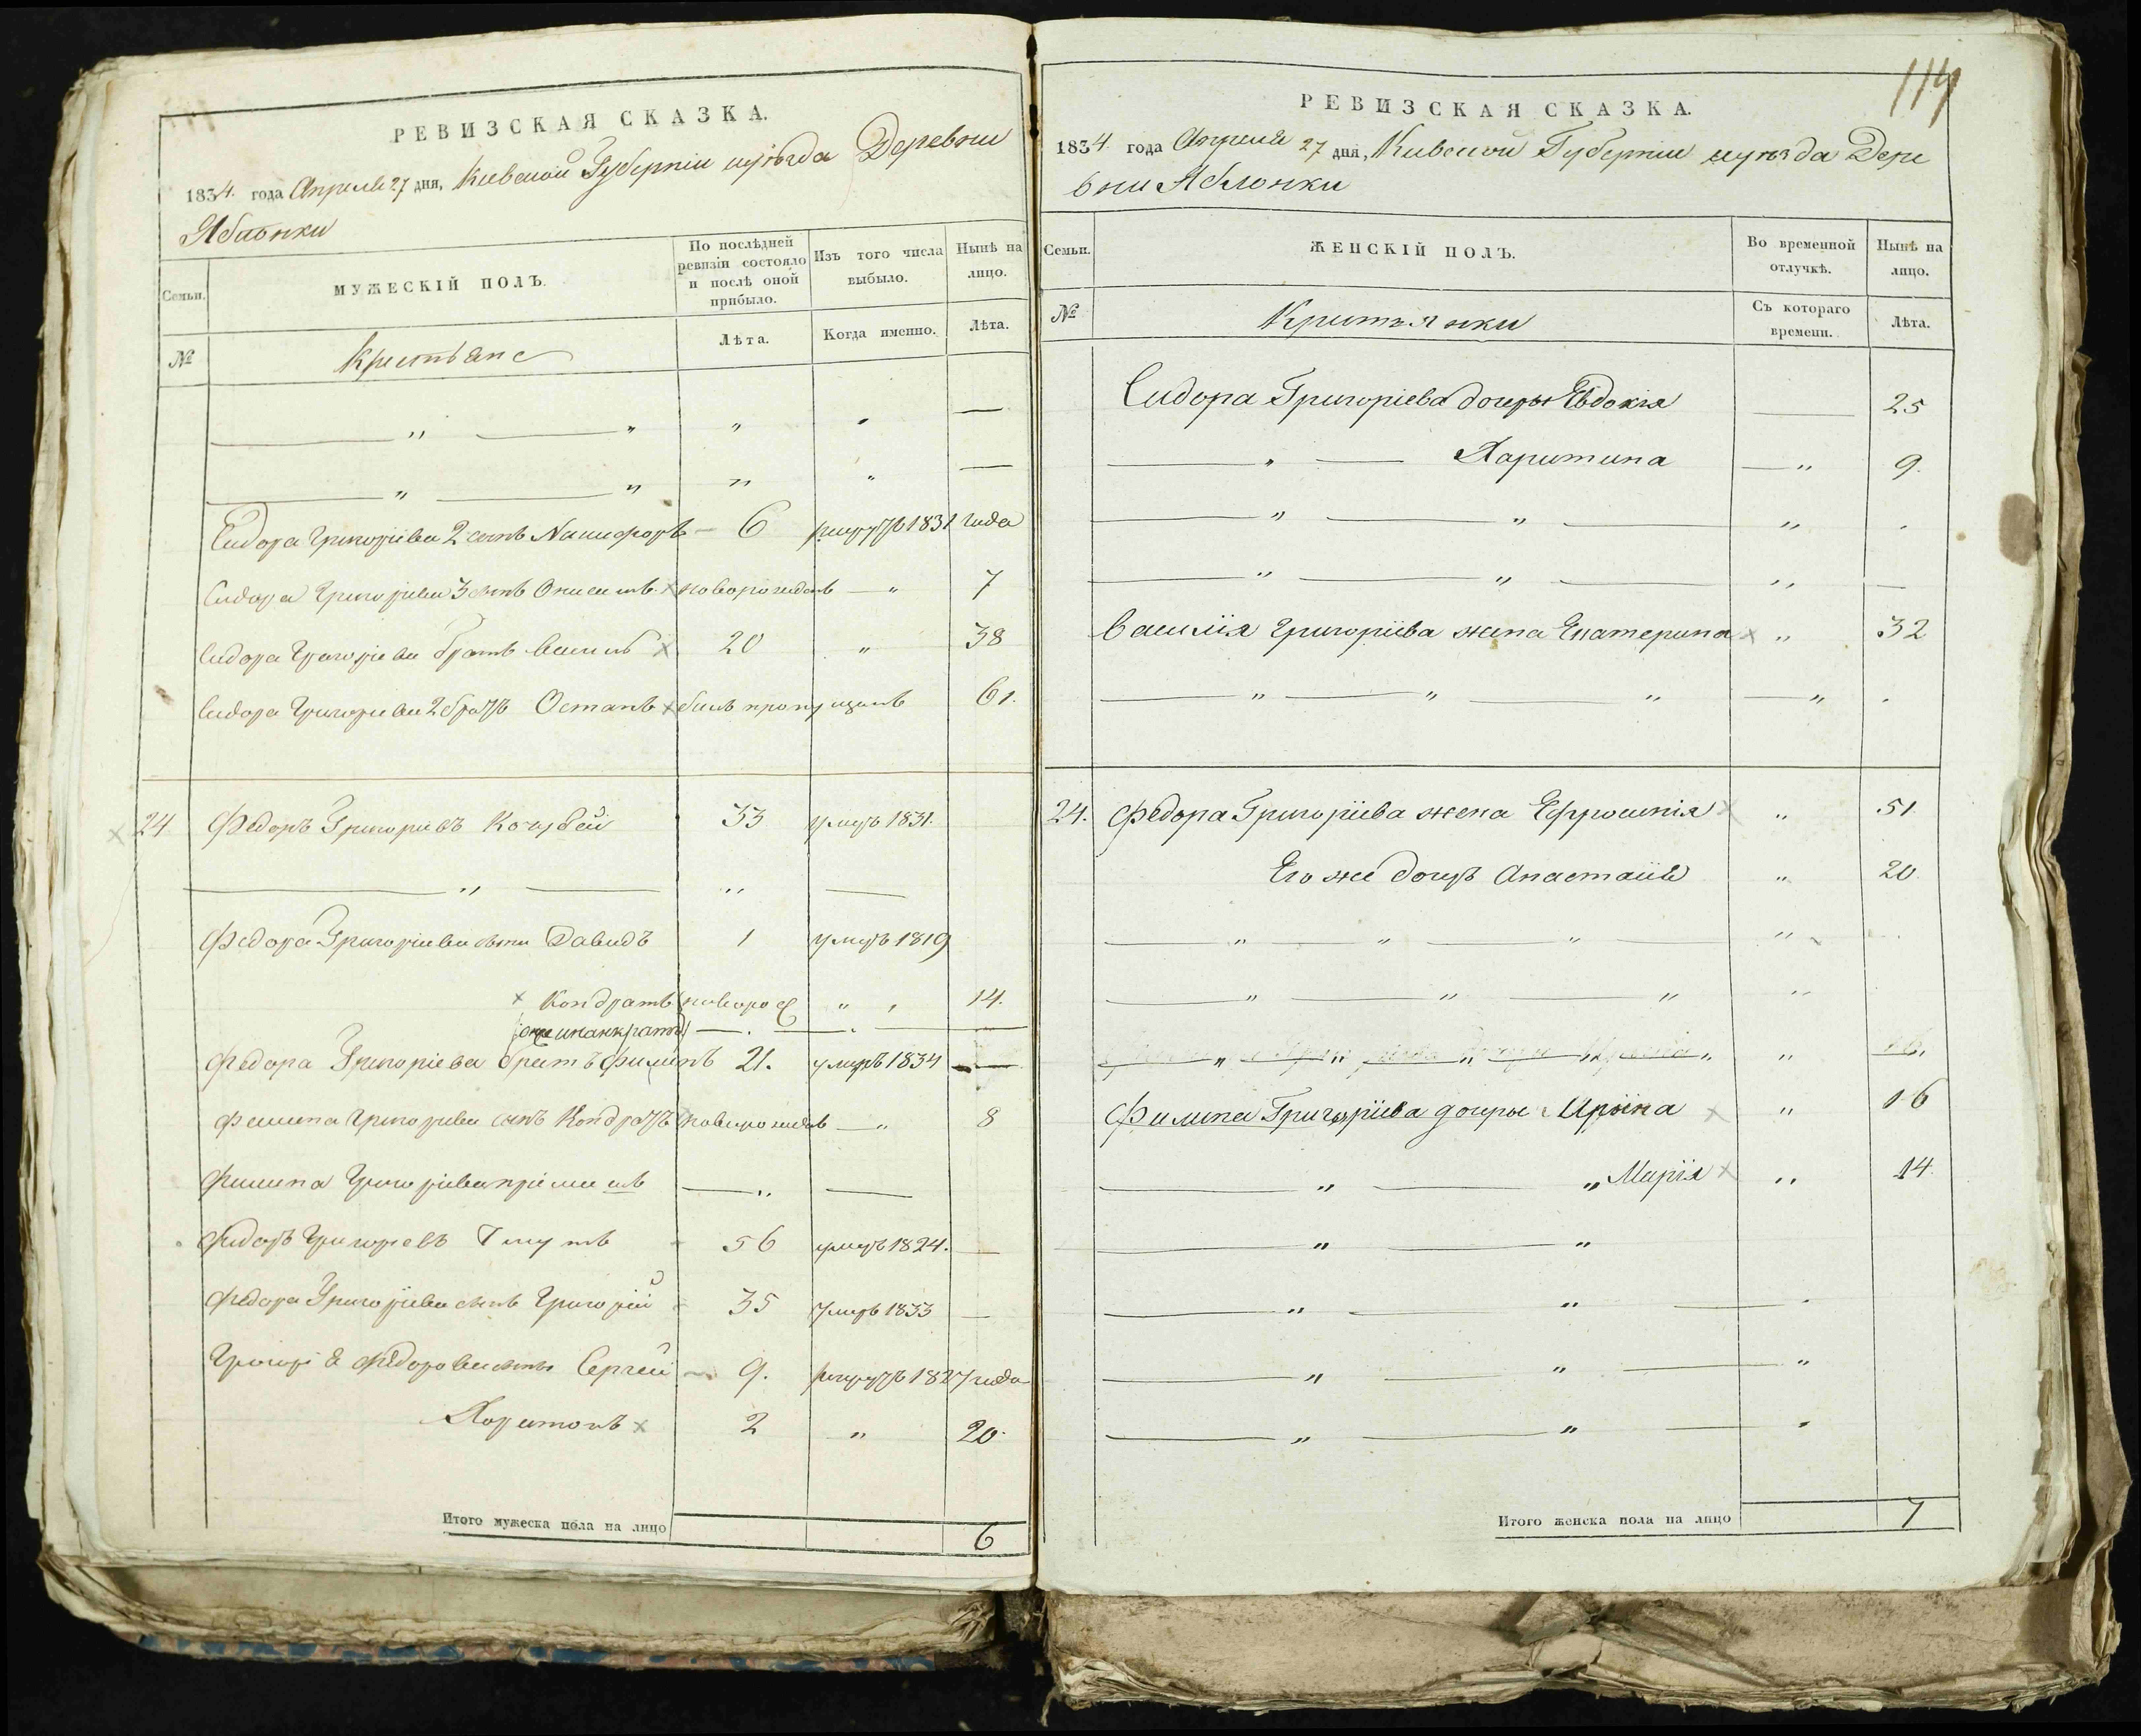 РЕВИЗСКАЯ СКАЗКА.
1834. года Апреля 27 дня, Киевской Губерніи и уѣзда Деревни
Яблонки
Семьи.
МУЖЕСКІЙ ПОЛЪ.
По послѣдней ревизіи состояло и послѣ оной прибыло.
Изъ того числа выбыло.
Нынѣ на лицо.
№
Крестьяне
Лѣта.
Когда именно.
Лѣта.
Сидора Григоріева 2 сынъ Никифоръ 6 рекрутъ 1831 года
Сидора Григоріева 3 сынъ Онисимъ новорожденъ 7
Сидора Григоріева братъ Василь 20 38
Сидора Григоріева 2 братъ Остапъ былъ пропущенъ 61.
24 Федоръ Григорьевъ Кочубей 33 умеръ 1831.
Федора Григоріева сынъ Давидъ 1 умеръ 1819
Кондратъ новорож 14.
онъ же и Панкратъ
Федора Григоріева братъ Филипъ 21. умеръ 1834
Филипа Григоріева сынъ Кондратъ новорожденъ 8
Филипа Григоріева
Федоръ Григорьевъ 56 умеръ 1824.
Федора Григоріева сынъ Григорій 35 умеръ 1833
Григорія Федорова сынъ Сергей 9. рекрутъ 1827 года
Харитонъ 2 20.
Итого мужеска пола на лицо 6
114
РЕВИЗСКАЯ СКАЗКА.
1834. года Апреля 27 дня, Киевской Губерніи и уѣзда Дере
вни Яблонки
Семьи.
ЖЕНСКІЙ ПОЛЪ.
Во временной отлучкѣ.
Нынѣ на лицо.
№
Крестьянки
Съ котораго времени.
Лѣта.
Сидора Григоріева дочеры Евдокія 25
Харитина 9.
Василія Григоріева жена Екатерина 32
24. Федора Григоріева жена Ефросинія 51
Его же дочерь Анастасія 20
Филипа Григоріева дочеры Ирина 16
Марія 14.
Итого женска пола на лицо 7